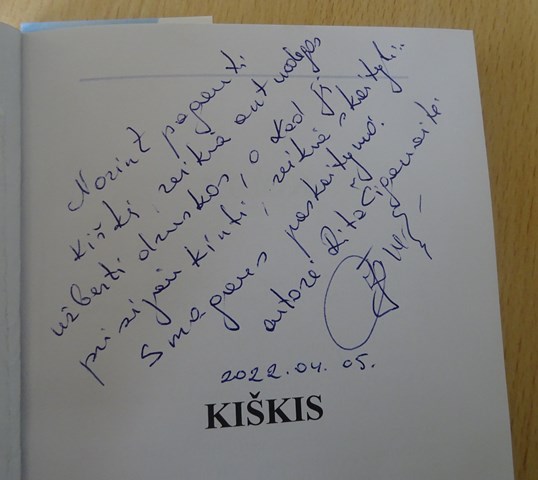 Norint pagauti
kiškį reikia ant uodegos
užberti druskos, o kad jį
prisijaukinti, reikia skaityti.
Smagaus paskaitymo!
autorė Rita Čiganaitė
2022.04.05.
KIŠKIS